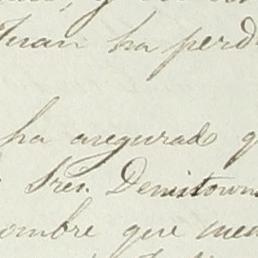 Juan ha perd
ha asegurado q
Sres. Demstown
ombre que me